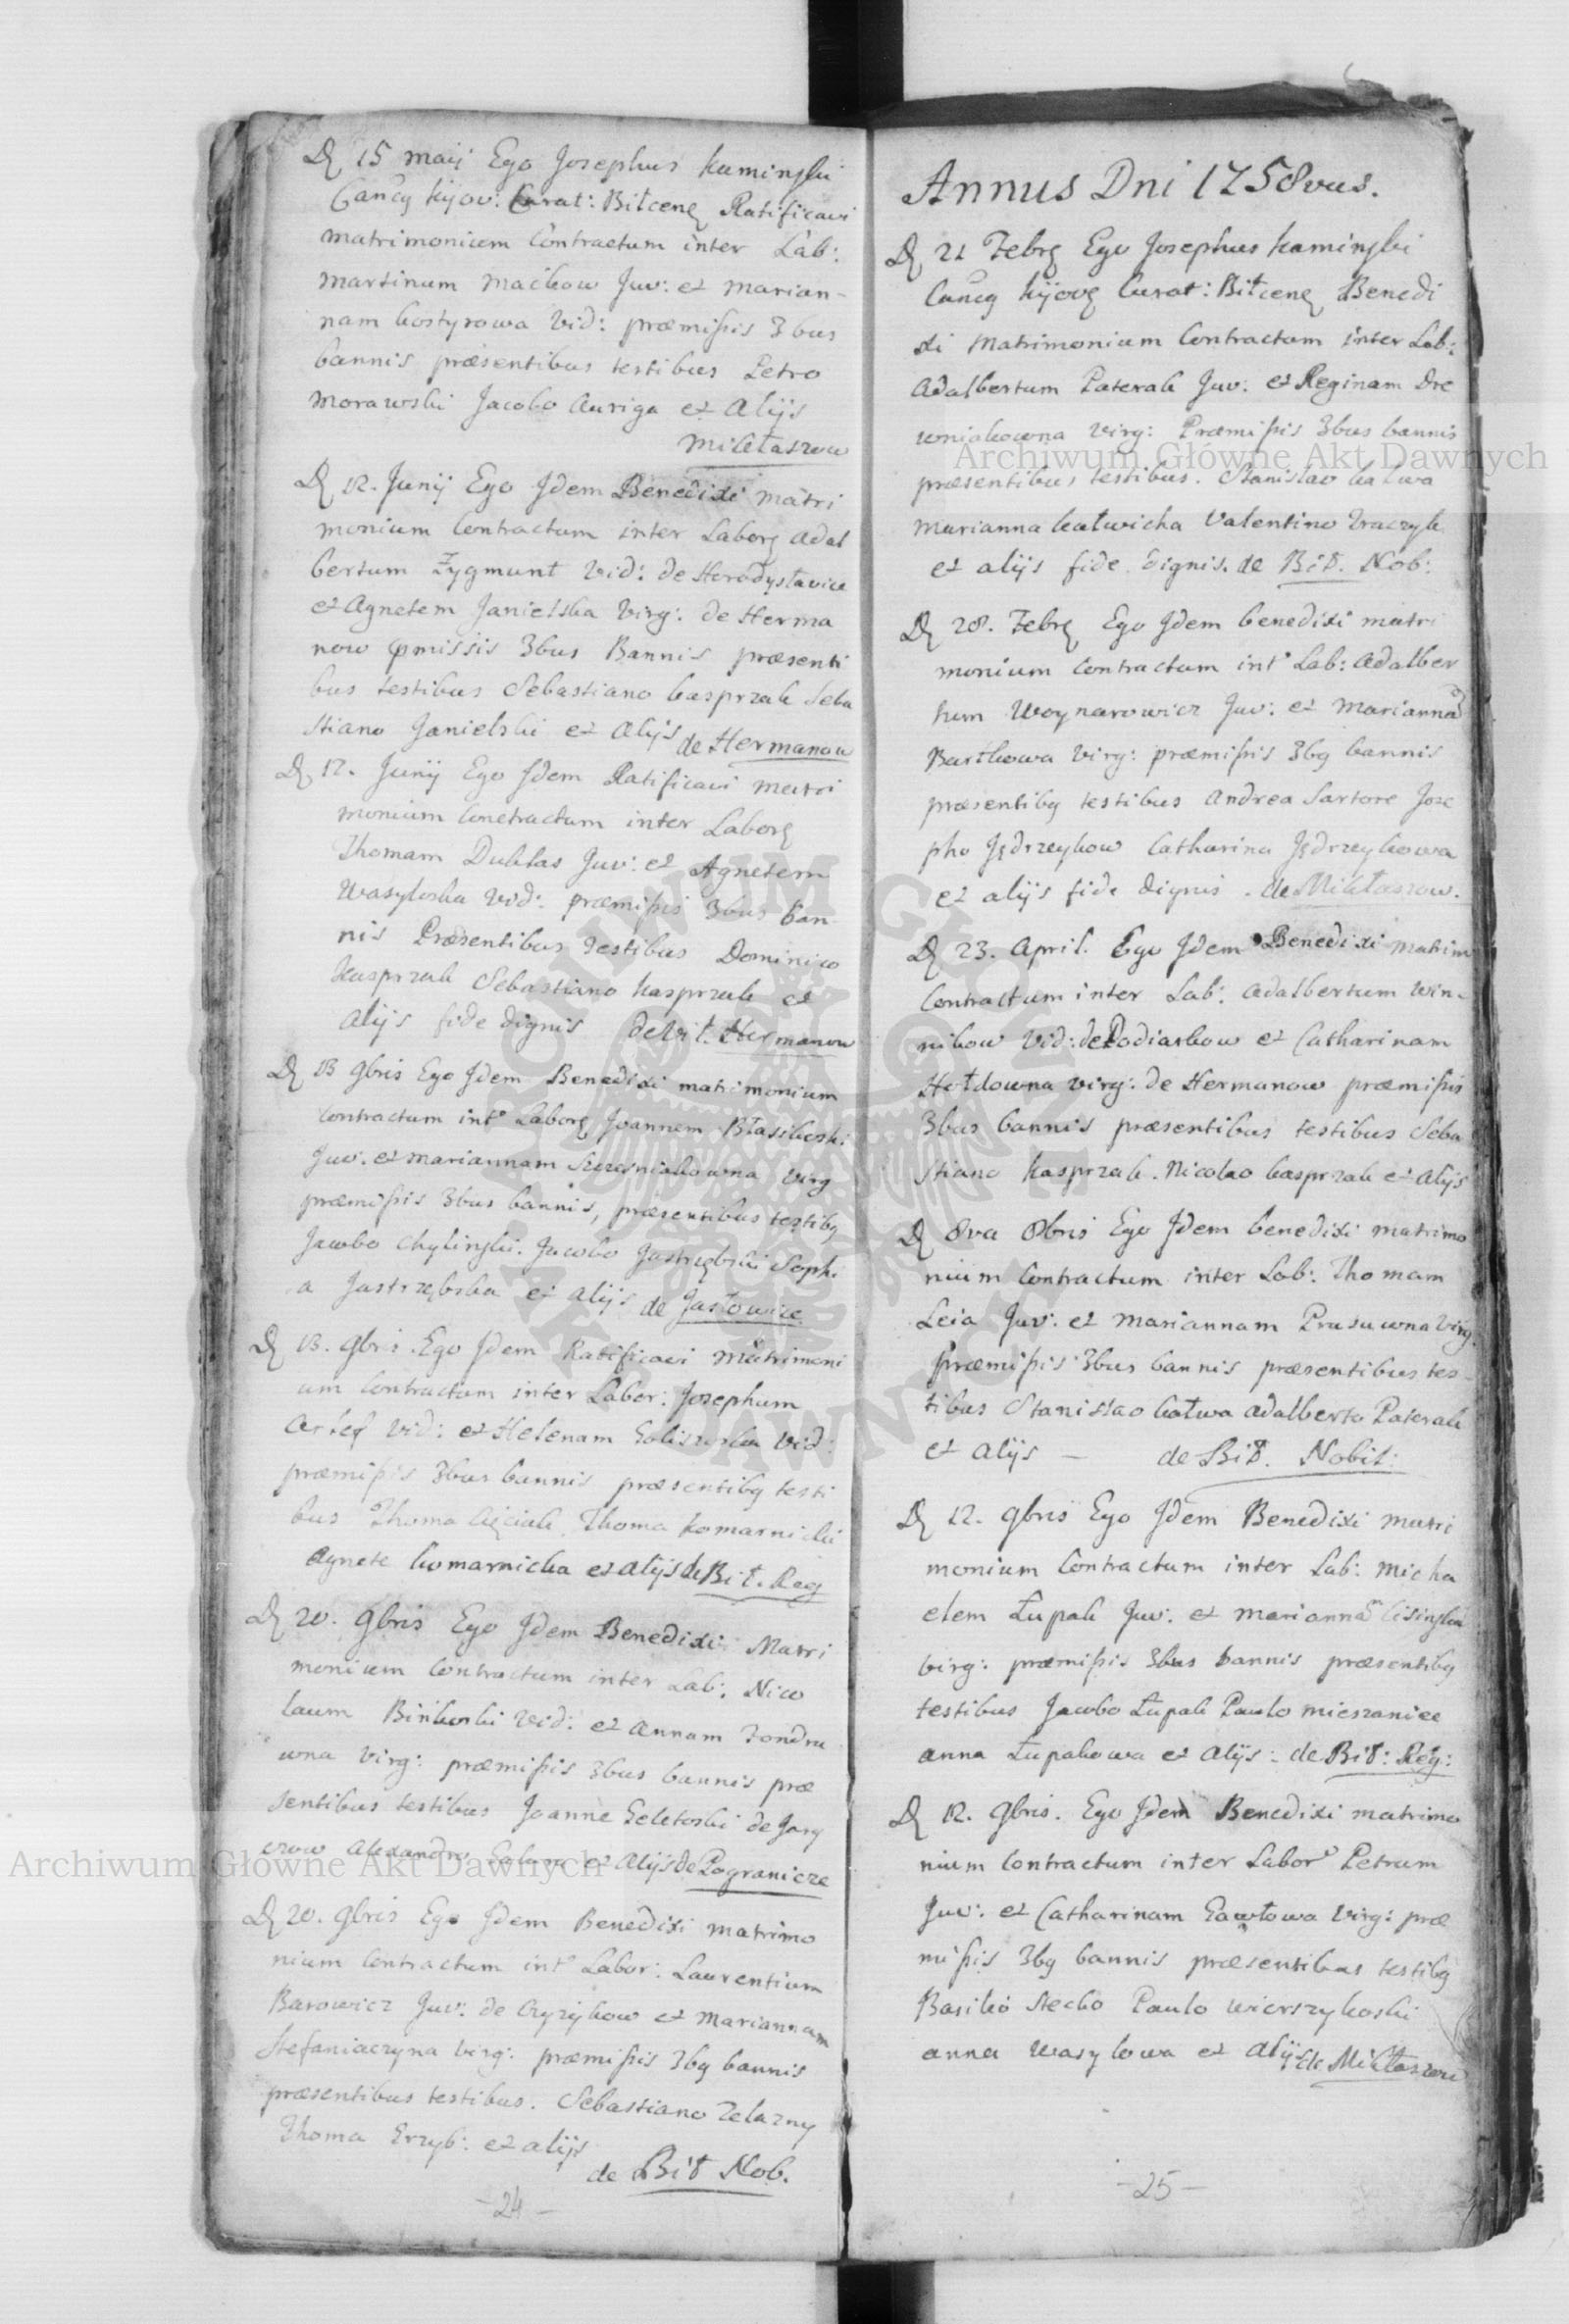 D 15 maij Ego Josephus Kaminski
Cancg Kijov: Curat: Biłceng Ratificavi
matrimonium Contractum inter Lab:
Martinum Maćkow Juv: et Marian-
nam Kostyrowa Vid: præmißis 3bus
bannis præsentibus testibus Petro
Morawski Jacobo Auriga et Alijs
Mikłaszow
D 12. Junij Ego Jdem Benedixi matri
monium Contractum inter Laborg Adal
bertum Zygmunt Vid: de
et Agnetem Janielska Virg: de Herma
now pmissis 3bus Bannis præsenti
bus testibus Sebastiano Kasprzak Seba
stiano Janielski et Alijs de Hermanow
D 12. Junij Ego Jdem Ratificavi matri
monium Conctractum inter Laborg
Thomam Duklas Juv: et Agnetem
Wasyloska Vid: præmißis 3bus ban
nis Præsentibus Testibus Dominico
Kasprzak Sebastiano Kasprzak et
Alijs fide dignis de Vil. Hermanow
D 13 9bris Ego Jdem Benedixi matrimonium
Contractum int Laborg Joannem Błasikoski
Juv: et Mariannam Szczesniakowna Virg
præmißis 3bus bannis, præsentibus testibg
Jacobo Chylinski. Jacobo Jastrzębski Sophi
a Jastrzębska et alijs de Jasłowice
D 13. 9bris Ego Jdem Ratificavi Matrimoni
um Contractum inter Labor: Josephum
Vid: et Helenam Vid:
præmißis 3bus bannis præsentibg testi
bus Thoma Cięciak Thoma Komarnicki
Agnete Komarnicka et alijs de Bił. Reg
D 20. 9bris Ego Jdem Benedixi Matri
monium Contractum inter Lab: Nico
laum Binkoski Vid: et Annam Fondra
wna Virg: præmißis 3bus bannis præ
sentibus testibus Joanne Geletoski de Jary
czow Alexandro et Alijs de Pogranicze
D 20. 9bris Ego Jdem Benedixi matrimo
nium Contractum int Labor: Laurentium
Barowicz Juv: de et Mariannam
Stefaniaczyna Virg: præmißis 3bg bannis
præsentibus testibus. Sebastiano Zelazny
Thoma Grzyb: et alijs
de Bił Nob.
-24-
Annus Dni 1758vus.
D 21 Febrg Ego Josephus Kaminski
Cancg Kijovg Curat: Biłceng Benedi
xi Matrimonium Contractum inter Lab:
Adalbertum Paterak Juv: et Reginam Dre
wniakowna Virg: Præmißis 3bus bannis
præsentibus testibus. Stanislao Kałwa
Marianna Kałwicka Valentino Tkaczyk
et alijs fide dignis. de Bił. Nob:
D 28. Febrg Ego Jdem benedixi matri
monium contractum int Lab: Adalber
tum Woynarowicz Juv: et Marianna
Bartkowa Virg: præmißis 3bg bannis
præsentibg testibus Andrea Sartore Jose
pho Jędrzeykow Catharina Jędrzeykowa
et alijs fide dignis. de Mikłaszow.
D 23. April. Ego Jdem Benedixi matrim
Contractum inter Lab: Adalbertum Win-
nikow Vid: de Podiarkow et Catharinam
Hołdowna Virg: de Hermanow præmißis
3bus bannis præsentibus testibus Seba
stiano Kasprzak. Nicolao Kasprzak et alijs
D 8va 8bris Ego Jdem benedixi matrimo
nium Contractum inter Lab: Thomam
Leia Juv: et Mariannam Prusuwna Virg
Præmißis 3bus bannis præsentibus tes-
tibus Stanislao Kałwa Adalberto Paterak
et Alijs - de Bił. Nobil:
D 12. 9bris Ego Jdem Benedixi matri
monium Contractum inter Lab: Micha
elem Łupak Juv: et Marianna Cisinska
Virg: præmißis 3bus bannis præsentibg
testibus Jacobo Łupak Paulo Mieszaniec
anna Łupakowa et Alijs - de Bił: Reg:
D 12. 9bris. Ego Jdem Benedixi matrimo
nium Contractum inter Labor Petrum
Juv: et Catharinam Gawłowa Virg: præ
mißis 3bg bannis præsentibus testibg
Basilio Stecko Paulo Wierszykoski
anna Wasylowa et Alijs de Mikłaszow
-25-
Archiwum Główne Akt Dawnych
Archiwum Główne Akt Dawnych
ARCHIWUM GŁÓWNE AKT DAWNYCH